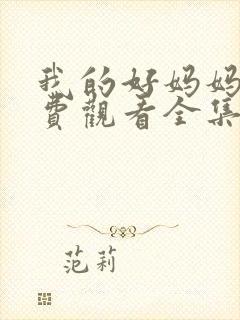 我的好妈妈
费觀看全集
范莉